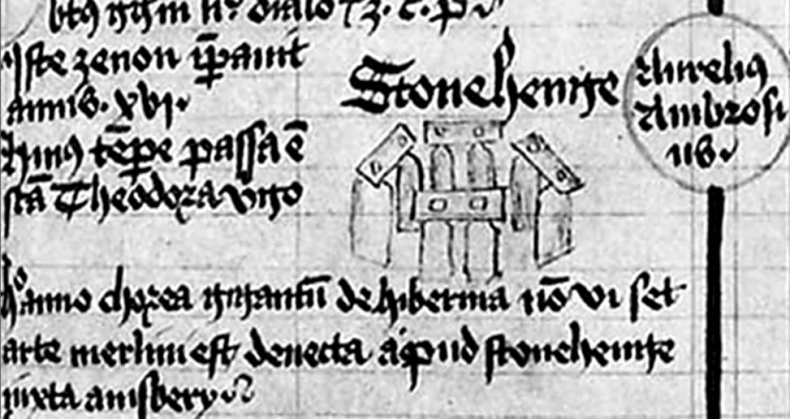 Iste zenon īpauit
annis. xvi.
huiꝰ tēpe passa ē
scā Theodora virgo
Stonehenge
Aureliꝰ
Ambrosi
us.
hoc anno chorea gigantū de hibernia nō vi set
arte merlini est deuecta apud stonehenge
iuxta amsbery